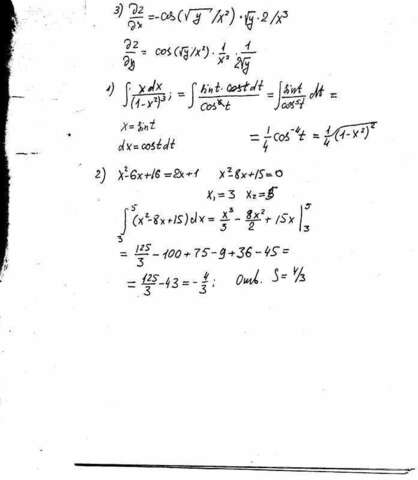 3) ∂z/∂x = -cos(√y/x²)·√y·2/x³
∂z/∂y = cos(√y/x²)·1/x²·1/2√y
1) ∫ xdx/(1-x²)³; = ∫ sint·costdt/cos⁶t = ∫ sint/cos⁵t dt =
x=sint
dx=costdt
= 1/4 cos⁻⁴t = 1/4 √(1-x²)²
2) x²-6x+16=2x+1 x²-8x+15=0
x₁=3 x₂=5
₃∫⁵(x²-8x+15)dx = x³/3 - 8x²/2 + 15x |₃⁵
= 125/3 - 100 + 75 - 9 + 36 - 45 =
= 125/3 - 43 = -4/3; Отв. S=4/3